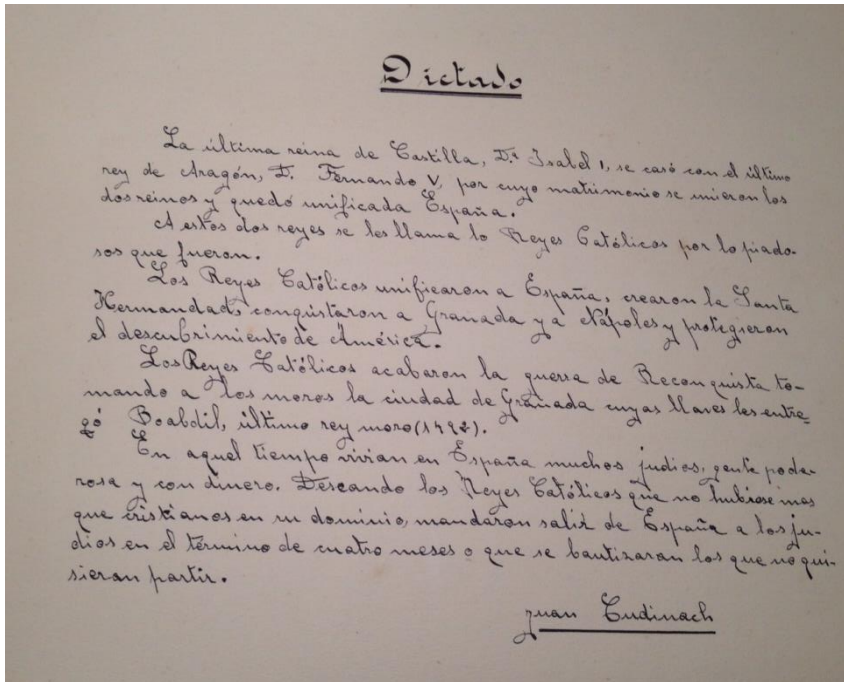 Dictado
La última reina de Castilla, D.ª Isabel I, se casó con el último
rey de Aragón, D. Fernando V, por cuyo matrimonio se unieron los
dos reinos y quedó unificada España.
A estos dos reyes se les llama lo Reyes Católicos por lo piado-
sos que fueron.
Los Reyes Católicos unificaron a España, crearon la Santa
Hermandad, conqistaron a Granada y a Nápoles y protegieron
el descubrimiento de América.
Los Reyes Católicos acabaron la guerra de Reconquista to-
mando a los moros la ciudad de Granada cuyas llaves les entre-
gó Boabdil, último rey moro (1492).
En aquel tiempo vivian en España muchos judios, gente pode-
rosa y con dinero. Deseando los Reyes Católicos que no hubiese mas
que cristianos en su dominio, mandaron salir de España a los ju-
dios en el término de cuatro meses o que se bautizaran los que no qui-
sieran partir.
Juan Cudinach